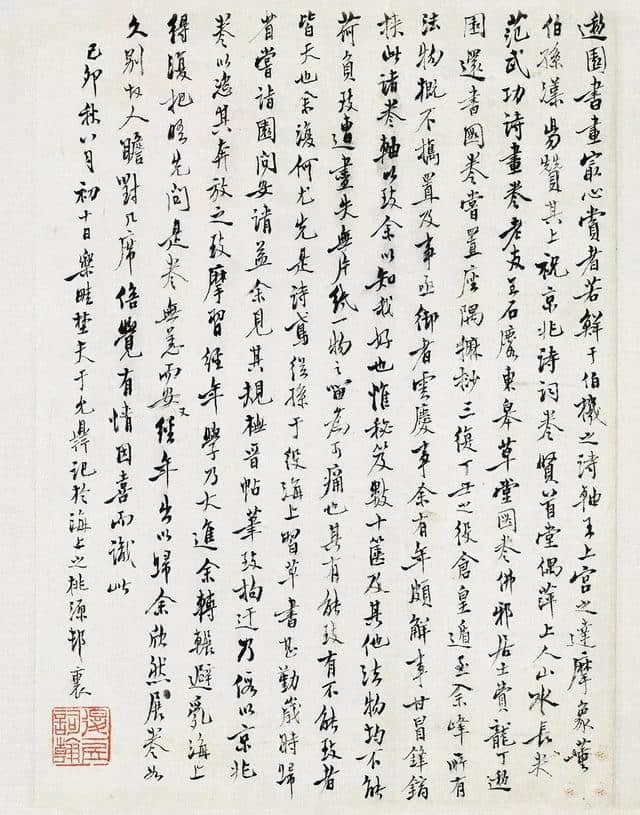 遯園書畫最心賞者若鮮于伯機之詩軸王上宮之達摩象
伯孫漾易贊其上祝京兆詩詞卷賢首堂偶萍上人山水長卷
范武功詩畫卷老友王石廬東皋草堂圖卷佛邪居士賞龍丁遯
園還書圖卷嘗置座隅摩抄三復丁丑之役倉皇遁丞余峰所有
法物概不攜置及事亟御者雲慶事余有年頗解事甘冒鋒鏑
挾此諸卷軸以致余以知我好也惟秘笈數十篋及其他法物均不能
荷負致遭盡失無片紙一物之留為可痛也其有能致有不能致者
皆天也余復何尤先是詩鳶從孫于役海上習草書甚勤歲時歸
省嘗詣園問安請益余見其規橅晉帖筆致拘迂乃假以京兆
卷以恣其奔放之致摩習經年學乃大進余轉輾避亂海上
得復把晤先問是卷無恙而安又經年出以歸余欣然展卷如
久別故人瞻對几席倍覺有情因喜而識此
己卯秋八月初十日樂畦埜夫于允鼎記於海上之桃源邨裏